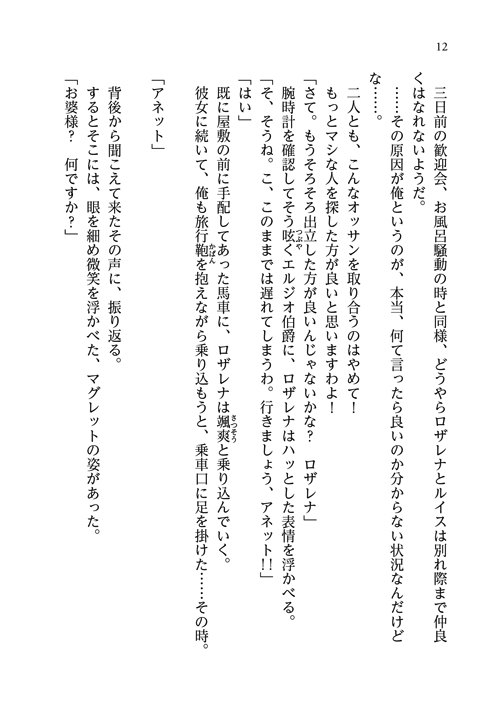 12
三日前の歓迎会、お風呂騒動の時と同様、どうやらロザレナとルイスは別れ際まで仲良
くはなれないようだ。
……その原因が俺というのが、本当、何て言ったら良いのか分からない状況なんだけど
な……。
二人とも、こんなオッサンを取り合うのはやめて！
もっとマシな人を探した方が良いと思いますわよ！
「さて。もうそろそろ出立した方が良いんじゃないかな？　ロザレナ」
腕時計を確認してそう呟くエルジオ伯爵に、ロザレナはハッとした表情を浮かべる。
つぶや
「そ、そうね。こ、このままでは遅れてしまうわ。行きましょう、アネット!!」
「はい」
既に屋敷の前に手配してあった馬車に、ロザレナは颯爽と乗り込んでいく。
さっそう
彼女に続いて、俺も旅行鞄を抱えながら乗り込もうと、乗車口に足を掛けた……その時。
かばん
「アネット」
背後から聞こえて来たその声に、振り返る。
するとそこには、眼を細め微笑を浮かべた、マグレットの姿があった。
「お婆様？　何ですか？」